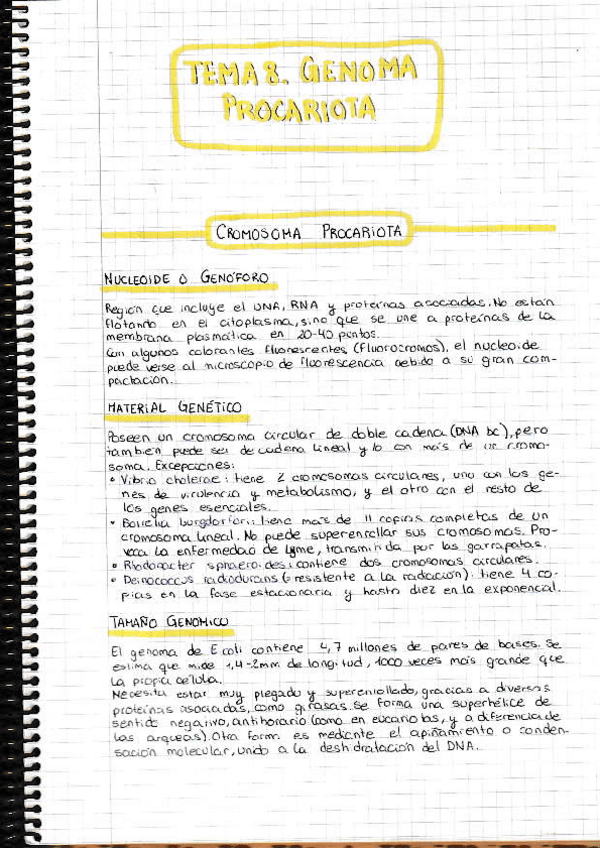 TEMA 8. GENOMA
PROCARIOTA
CROMOSOMA PROCARIOTA
NUCLEOIDE O GENÓFORO
Región que incluye el DNA, RNA y proteínas asociadas. No están
flotando en el citoplasma, sino que se une a proteínas de la
membrana plasmática en 20-40 puntos.
Con algunos colorantes fluorescentes (fluorocromos), el nucleoide
puede verse al microscopio de fluorescencia debido a su gran com-
pactación.
MATERIAL GENÉTICO
Poseen un cromosoma circular de doble cadena (DNA bc), pero
también puede ser de cadena lineal y/o con más de un cromo-
soma. Excepciones:
• Vibrio cholerae: tiene 2 cromosomas circulares, uno con los ge-
nes de virulencia y metabolismo, y el otro con el resto de
los genes esenciales.
• Borrelia burgdorferi: tiene más de 11 copias completas de un
cromosoma lineal. No puede superenrollar sus cromosomas. Pro-
voca la enfermedad de lyme, transmitida por las garrapatas.
• Rhodobacter sphaeroides: contiene dos cromosomas circulares.
• Deinococcus radiodurans (resistente a la radiación): tiene 4 co-
pias en la fase estacionaria y hasta diez en la exponencial.
TAMAÑO GENÓMICO
El genoma de E coli contiene 4,7 millones de pares de bases. Se
estima que mide 1,4-2mm de longitud, 1000 veces más grande que
la propia célula.
Necesita estar muy plegado y superenrollado, gracias a diversas
proteínas asociadas, como girasas. Se forma una superhélice de
sentido negativo, antihorario (como en eucariotas, y a diferencia de
las arqueas). Otra forma es mediante el apiñamiento o conden-
sación molecular, unido a la deshidratación del DNA.